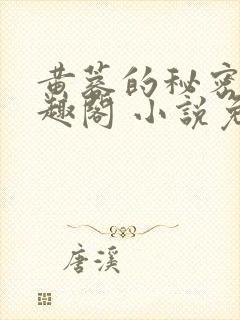 黄墓的秘密
趣阁 小说免
唐溪